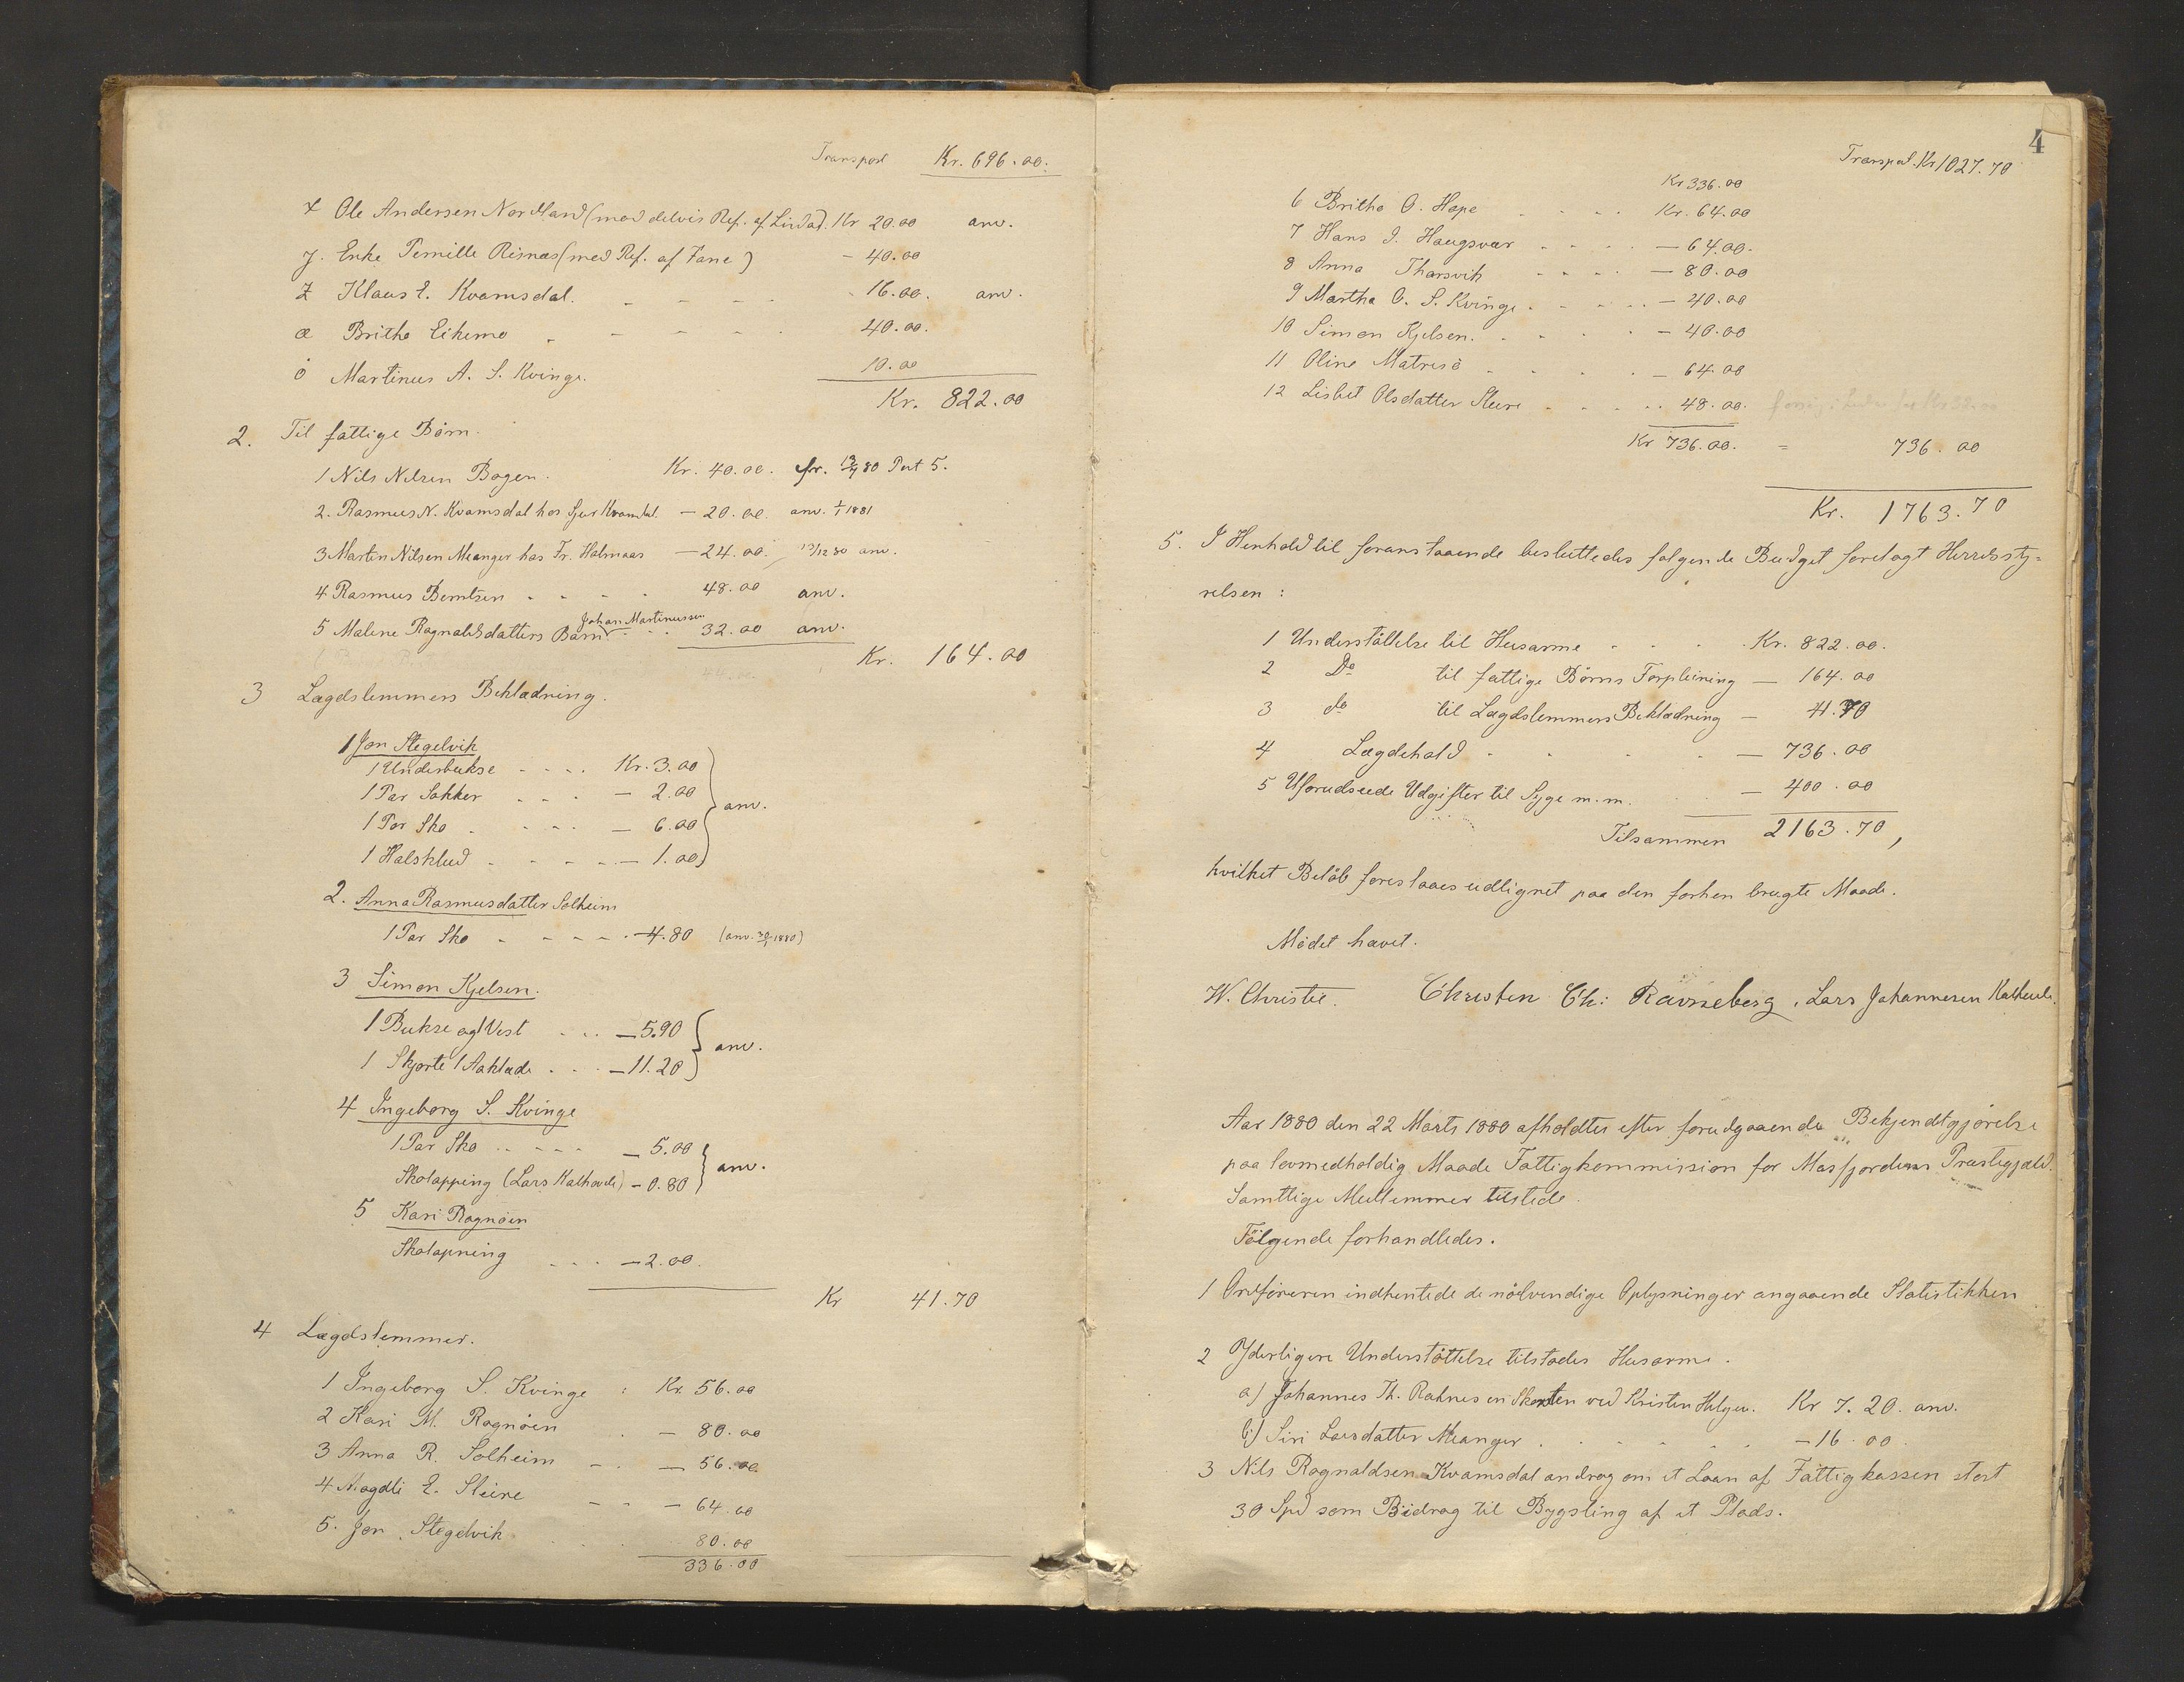 Transport Kr. 696.00.
x Ole Andersen Nordland (med delvis Ref. af Lindaas). Kr 20.00 anv.
y. Enke Pernille Risnæs (med Ref. af Fane) - 40.00
z Klaus E. Kvamsdal. - 16.00. anv.
æ Britha Eikemo - 40.00.
ö Martinus A. S. Kvinge. 10.00
Kr. 822.00
2. Til fattige Börn.
1 Nils Nilsen Bogen. Kr. 40.00. fr. 80 Post 5.
2. Rasmus N. Kvamsdal hos Sjur Kvamsdal. — 20.00. anv. 1881
3 Martin Nilsen Meanger hos Fr. Halmaas — 24.00. 13/12 80 anv.
4 Rasmus Berntsen - - - - 48.00 anv.
5 Malene Ragnaldsdatters Barn Johan Martinussen 32.00 anv.
Kr. 164.00
3 Lægdslemmers Beklædning.
1 Jon Stegelvik
1 Underbukse - - - . Kr. 3.00
1 Par Sokker - - - — 2.00 anv.
1 Par Sko - - - - — 6.00
1 Halsklud - - - - — 1.00
2. Anna Rasmusdatter Solheim
1 Par Sko - - - - - 4.80 (anv. 1880)
3 Simon Kjelsen.
1 Bukse og 1 Vest - - - — 5.90
1 Skjorte 1 Aaklæde . - - — 11.20 anv.
4 Ingeborg S. Kvinge
1 Par Sko - - - - — 5.00
Skolapping (Lars Kalhovde) - 0.80 anv.
5 Kari Ragnöen
Skolapning - - - — 2.00.
Kr 41.70
4 Lægdslemmer.
1 Ingeborg S. Kvinge : Kr. 56.00
2 Kari M. Ragnöen . — 80.00
3 Anna R. Solheim - . — 56.00
4 Magdli E. Steine - - — 64.00
5. Jon Stegelvik . . . 80.00
336.00
4
Transport. Kr 1027.70
Kr 336.00
6 Britha O. Hope - - - - Kr. 64.00
7 Hans I. Haugsvær - - - - — 64.00.
8 Anna Tharsvik - - - - — 80.00
9 Martha O. S. Kvinge - - - - — 40.00
10 Simon Kjelsen. - - - - — 40.00
11 Oline Matresö - - - - — 64.00
12 Lisbet Olsdatter Steire - - - . . 48.00.
Kr 736.00. = 736.00
Kr. 1763.70
5. I Henhold til foranstaaende besluttedes følgende Budget forelagt Herredssty-
relsen :
1 Understöttelse til Husarme - - - . Kr. 822.00.
2 Do til fattige Börns Forpleining — 164.00
3 do til Lægdslemmers Beklædning — 41.70
4 Lægdehold - - - - — 736.00
5 Uforudseede Udgifter til Syge m.m. — 400.00
Tilsammen 2163.70,
hvilket Belöb foreslaaes udlignet paa den forhen brugte Maade.
Mödet hævet.
W. Christie. Christen Ch: Ravneberg. Lars Johannesen Kalhovde.
Aar 1880 den 22 Marts 1880 afholdtes efter forudgaaende Bekjendtgjörelse
paa lovmedholdig Maade Fattigkommission for Masfjordens Præstegjæld.
Samtlige Medlemmer tilstede.
Fölgende forhandledes.
1 Ordföreren indhentede de nödvendige Oplysninger angaaende Statistikken
2 Yderligere Understöttelse tilstodes Husarme.
a) Johannes Th. Raknes en Skorsten ved Kristen Helgev. Kr 7.20. anv.
b) Siri Larsdatter Meanger . - - - - - — 16.00.
3 Nils Ragnaldsen Kvamsdal androg om et Laan af Fattigkassen stort
30 Spd som Bidrag til Bygsling af et Plads.